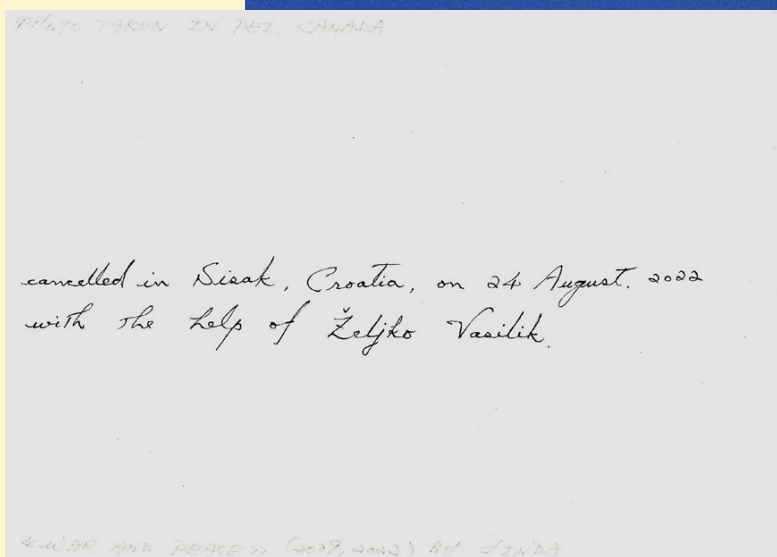 PHOTO TAKEN IN PEI. CANADA
cancelled in Sisak, Croatia, on 24 August. 2022
with the help of Željko Vasilik.
«WAR AND PEACE» (2009, 2022) BY